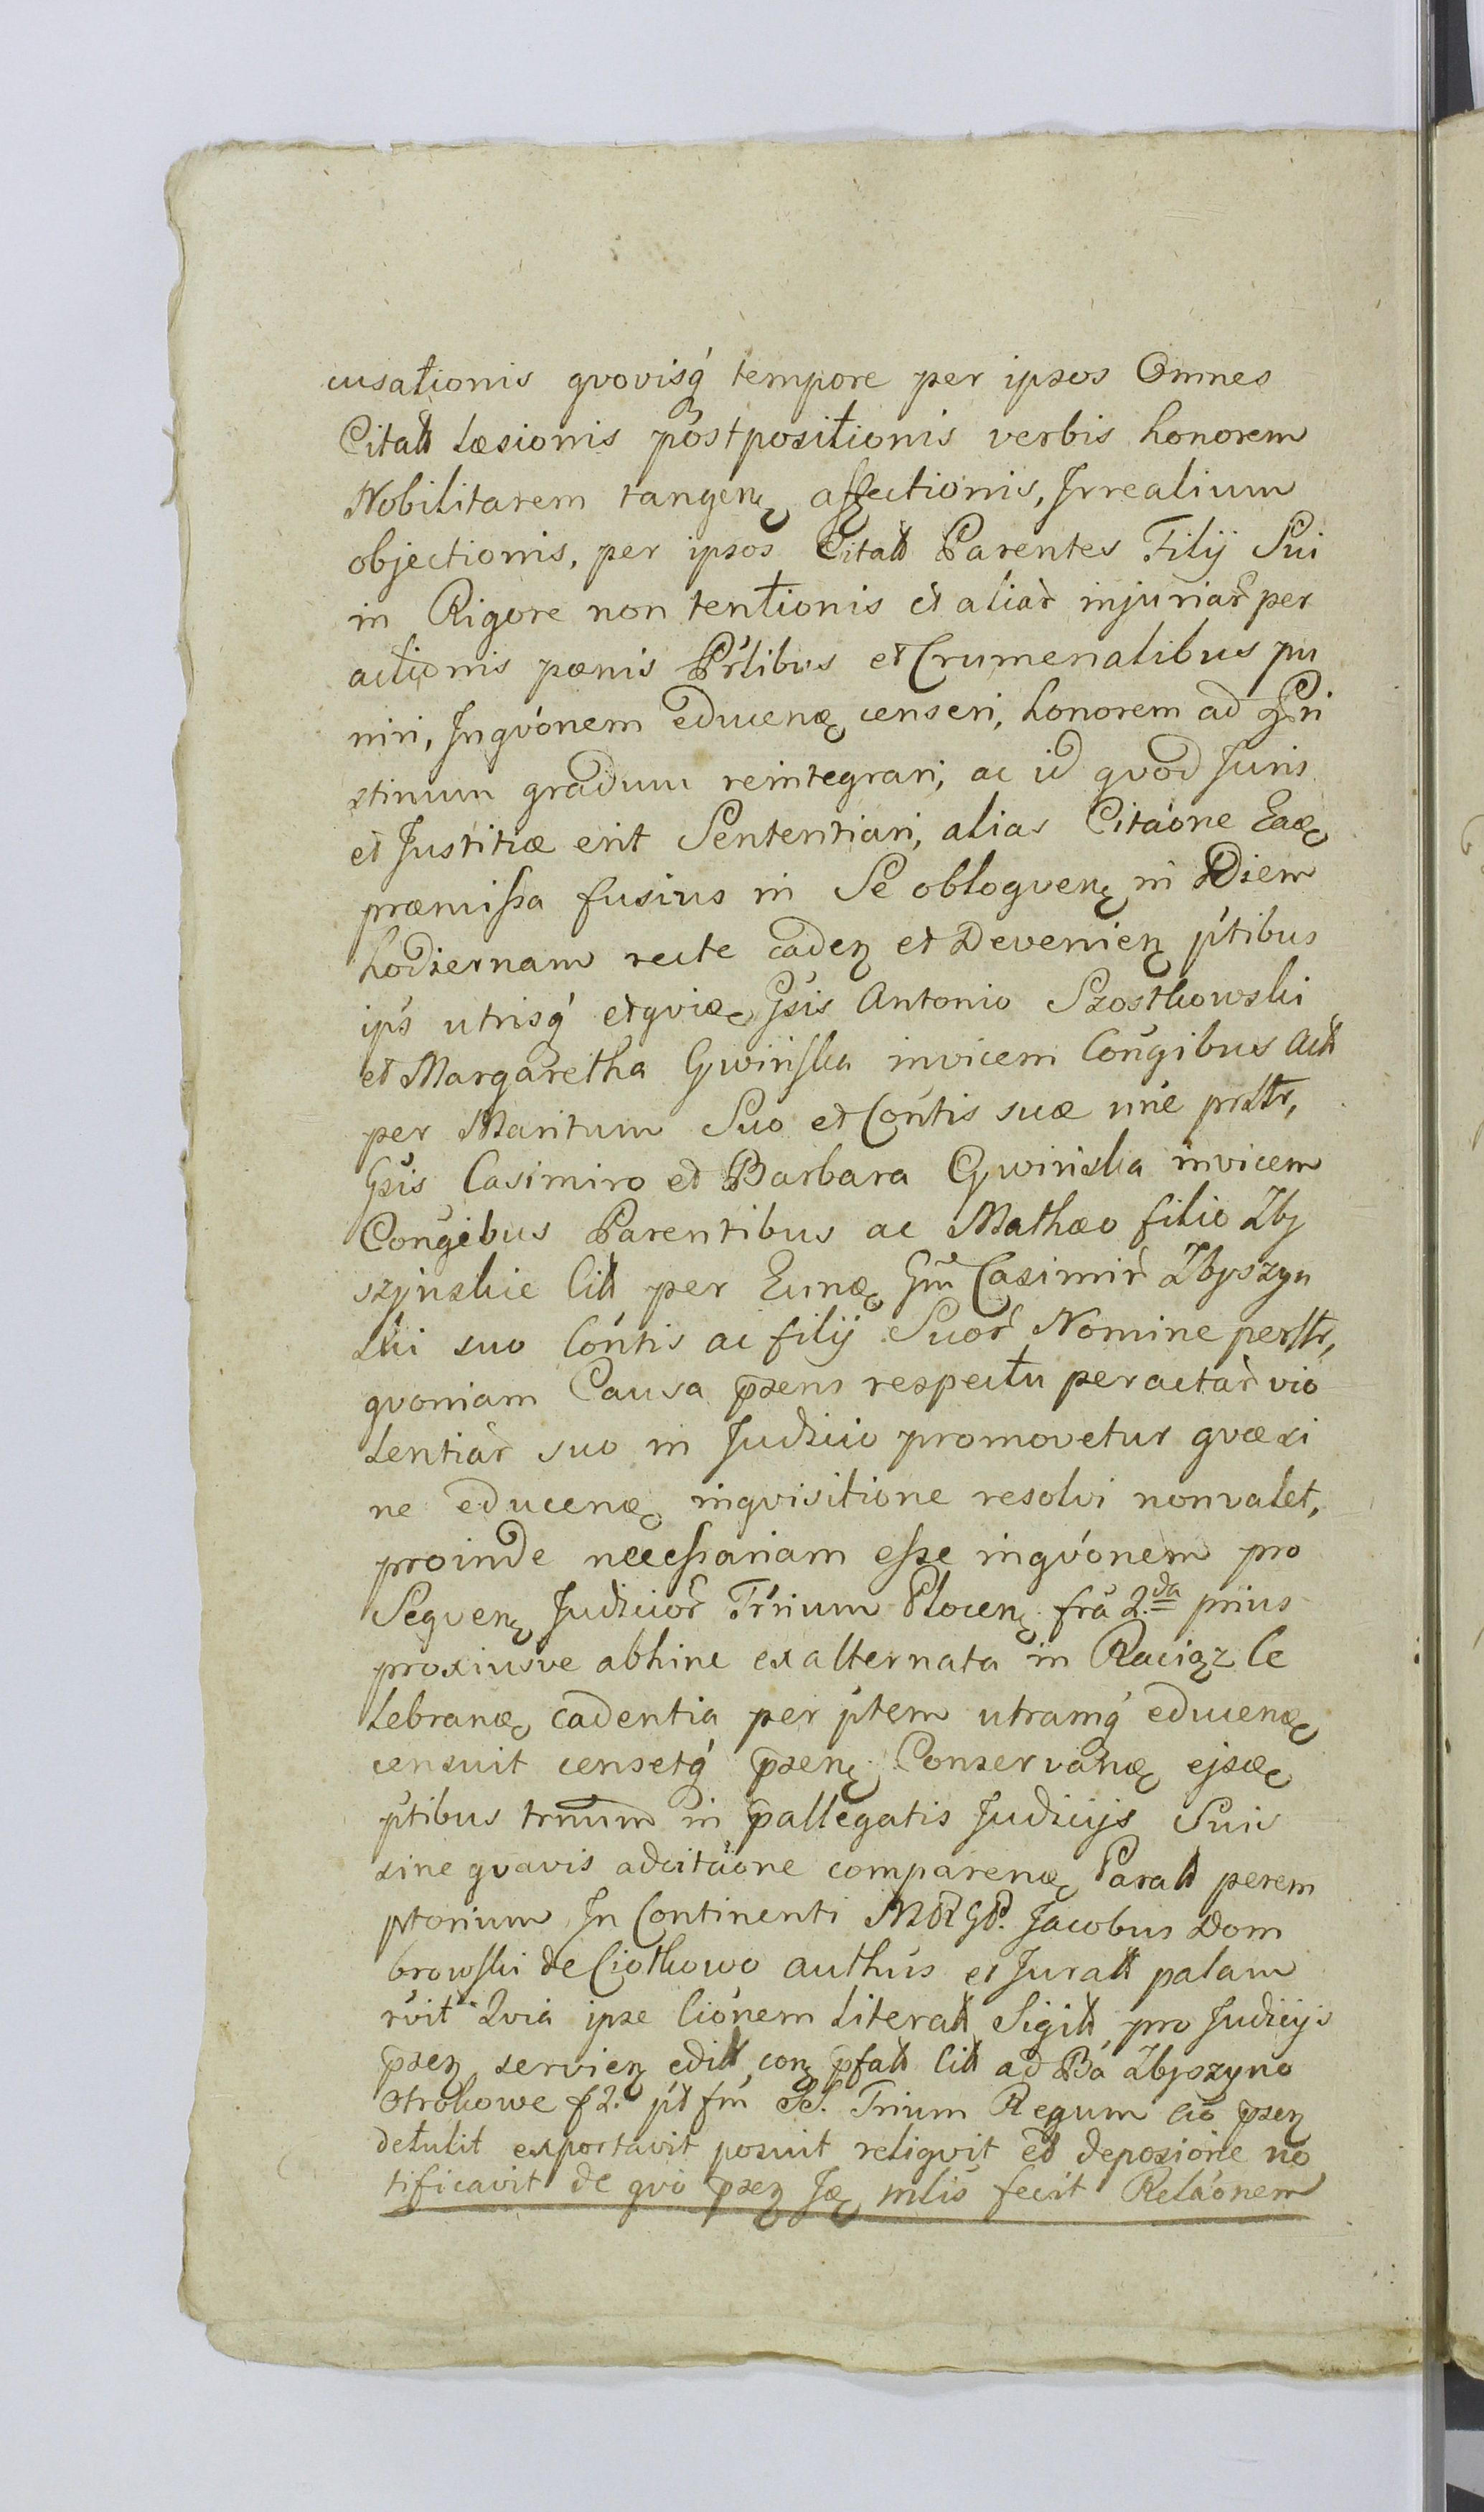 cusationis qvovisq́ tempore per ipsos Omnes
Citatt læsionis postpositionis verbis honorem
Nobilitarem tangenę affectionis, Irrealium
objectionis, per ipsos Citatt Parentes Filij Sui
in Rigore non tentionis et aliar̃ injuriar̃ per
actionis pœnis Pŕlibus et Crumenalibus pu
niri, Inqvónem educenæ censeri, honorem ad Pri
stinum gradum reintegrari, ac id qvod Juris
et Justitiæ erit Sententiari, alias Citaóne Eaæ
præmissa fusius in Se obloqvenę in Diem
hodiernam recte cadeņ et Devenieņ ṕtibus
ips̃ utrisq́ etqviæ Gsis Antonio Szostkowski
et Margaretha Gwinska invicem Conḡibus Actt
per Maritum Suo et Cońtis suæ nn̄e prsttr,
Gsis Casimiro et Barbara Gwinska invicem
Conḡibus Parentibus ac Mathæo filio Zbj
szÿnskie Citt per Eunæ Gm̃ Casimir̃ Zbyszyn
ski suo Cońtis ac filij Suor̃ Nomine persttr,
qvoniam Causa p̄sens respectu peractar̃ vio
lentiar̃ suo in Judicio promovetur qvæ si
ne educenæ inqvisitione resolvi nonvalet,
proinde necessariam esse inqvónem pro
Seqvenę Judicior̃ Tŕrium Plocenę fra 2.da prius
proxiusve abhinc exalternata in Raciąz Ce
lebranæ cadentia per ṕtem utramq́ educenæ
censuit censetq́ p̄senę Conservanæ ejsæ
ṕtibus trnum in p̄allegatis Judicijs Suis
sine qvavis adcitaóne comparenæ Paratt perem
ptorium In Continenti MRGD. Jacobus Dom
browski de Ciotkowo authús et Juratt palam
ŕvit Qvia ipse Ciónem Literatt Sigitt pro Judicijs
p̄seņ servieņ editt coņ p̄fatt Citt ad Ba Zbyszyno
Otrokowe f 2. ṕt fm̃ SS. Trium Regum Cio p̄seņ
detulit exportavit posuit reliqvit et deposióne no
tificavit de qvo p̄seņ Jæ mlis fecit Relaónem